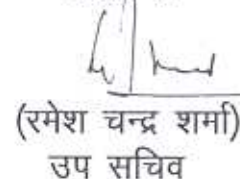 (रमेश चन्द्र शर्मा)
उप सचिव